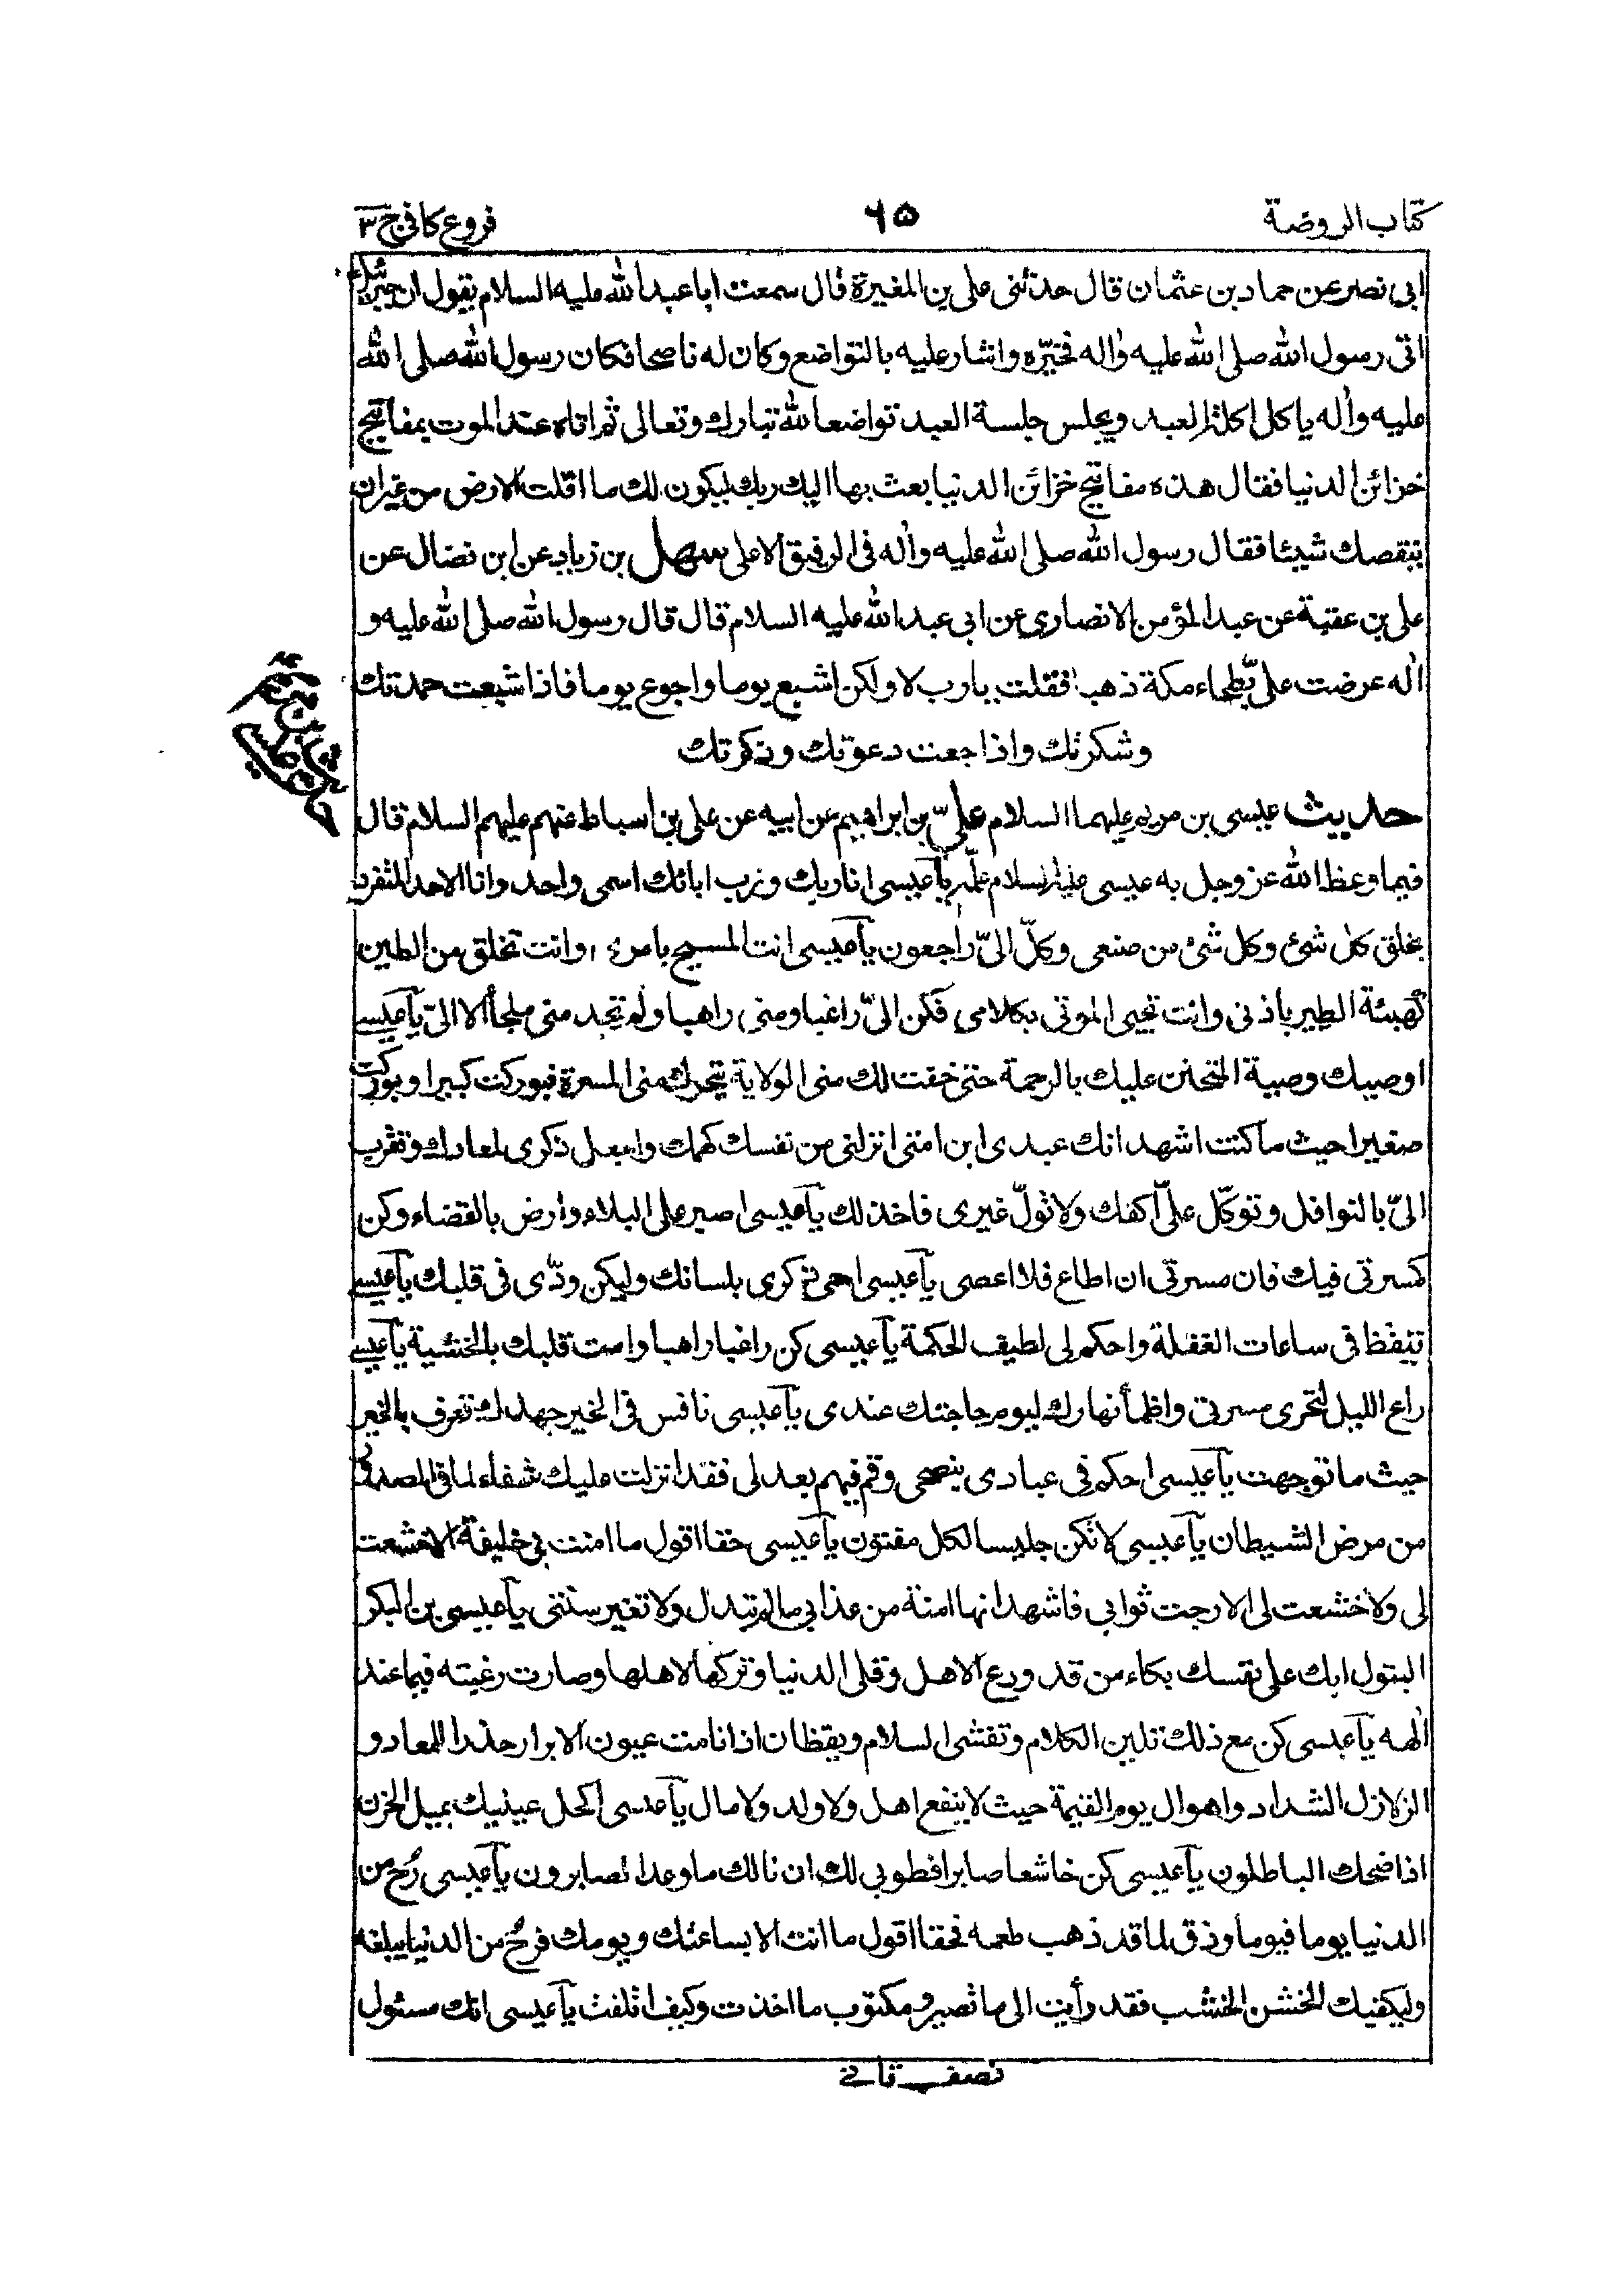 كتاب الروضة
٦۵
فروع كافى ج ٣
ابى نصر عن حماد بن عثمان قال حدثنى على بن المغيرة قال سمعت ابا عبد الله عليه السلام يقول ان جبرئيل
اتى رسول الله صلى الله عليه واله فخيّره واشار عليه بالتواضع وكان له ناصحا فكان رسول الله صلى الله
عليه واله ياكل اكلة العبد ويجلس جلسة العبد تواضعا لله تبارك وتعالى ثم اتاه عند الموت بمفاتيح
خزائن الدنيا فقال هذه مفاتيح خزائن الدنيا بعث بها اليك ربك ليكون لك ما اقلت الارض من غير ان
ينقصك شيئا فقال رسول الله صلى الله عليه واله فى الرفيق الاعلى سهل بن زياد عن ابن فضال عن
على بن عقبة عن عبد المؤمن الانصارى عن ابى عبد الله عليه السلام قال قال رسول الله صلى الله عليه و
اله عرضت علىّ بطحاء مكة ذهبا فقلت يارب لا ولكن اشبع يوما واجوع يوما فاذا شبعت حمدتك
وشكرتك واذا جعت دعوتك وذكرتك
حديث عيسى بن مريم عليهما السلام علىّ بن ابراهيم عن ابيه عن على بن اسباط عنهم عليهم السلام قال
فيما وعظ الله عز وجل به عيسى عليه السلام يآ عيسى انا ربك ورب ابائك اسمى واحد وانا الاحد المتفرد
بخلق كل شئ وكل شئ من صنعى وكلّ الىّ راجعون يآ عيسى انت المسيح بامرى وانت تخلق من الطين
كهيئة الطير باذنى وانت تحيى الموتى بكلامى فكن الىّ راغبا ومنى راهبا ولم تجد منى ملجأ الا الىّ يآ عيسى
اوصيك وصية المتحنن عليك بالرحمة حتى حقت لك منى الولاية بتحريك منى المسرة فبوركت كبيرا وبوركت
صغيرا حيث ما كنت اشهد انك عبدى ابن امتى انزلنى من نفسك كهمك واجعل ذكرى لمعادك وتقرب
الىّ بالنوافل وتوكّل علىّ اكفك ولا تولّ غيرى فاخذ لك يآ عيسى اصبر على البلاء وارض بالقضاء وكن
كمسرتى فيك فان مسرتى ان اطاع فلا اعصى يآ عيسى احى ذكرى بلسانك وليكن ودّى فى قلبك يآ عيسى
تيقظ فى ساعات الغفلة واحكم لى لطيف الحكمة يآ عيسى كن راغبا راهبا وامت قلبك بالخشية يآ عيسى
راع الليل لتحرى مسرتى واظمأ نهارك ليوم حاجتك عندى يآ عيسى نافس فى الخير جهدك تعرف بالخير
حيث ما توجهت يآ عيسى احكم فى عبادى بنصحى وقم فيهم بعدلى فقد انزلت عليك شفاء لما فى الصدور
من مرض الشيطان يآ عيسى لا تكن جليسا لكل مفتون يآ عيسى حقا اقول ما امنت بى خليقة الا خشعت
لى ولا خشعت لى الا رجت ثوابى فاشهد انها امنة من عذابى ما لم تبدل ولا تغير سنتى يآ عيسى بن البكر
البتول ابك على نفسك بكاء من قد ودع الاهل وقلى الدنيا وتركها لاهلها وصارت رغبته فيما عند
الهه يآ عيسى كن مع ذلك تلين الكلام وتفشى السلام ويقظان اذا نامت عيون الابرار حذر المعاد و
الزلازل الشداد واهوال يوم القيمة حيث لا ينفع اهل ولا ولد ولا مال يآ عيسى اكحل عينيك بميل الحزن
اذا ضحك البطالون يآ عيسى كن خاشعا صابرا فطوبى لك ان نالك ما وعد الصابرون يآ عيسى رح من
الدنيا يوما فيوما وذق لما قد ذهب طعمه فحقا اقول ما انت الا بساعتك ويومك فرح من الدنيا ببلغة
وليكفيك الخشن الجشب فقد رأيت الى ما تصير ومكتوب ما اخذت وكيف اتلفت يآ عيسى انك مسئول
نصف ثانى